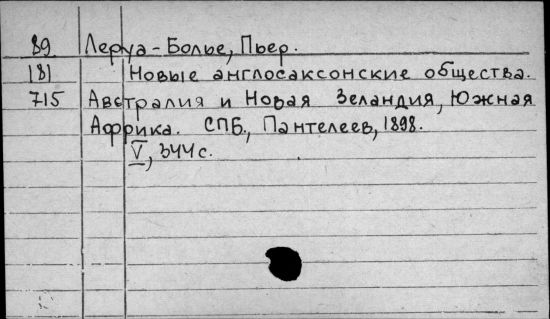 89 Леруа-Болье, Пьер.
181 Новые англосаксонские общества.
715 Австралия и Новая Зеландия, Южная
Африка. СПБ., Пантелеев, 1898.
V, 344 с.